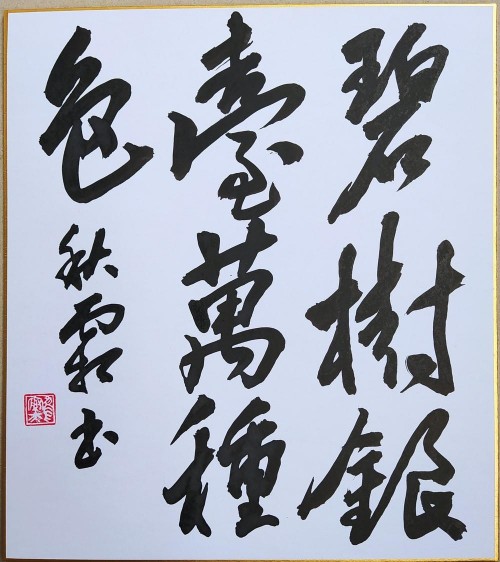 碧樹銀
臺萬種
色
秋霜書